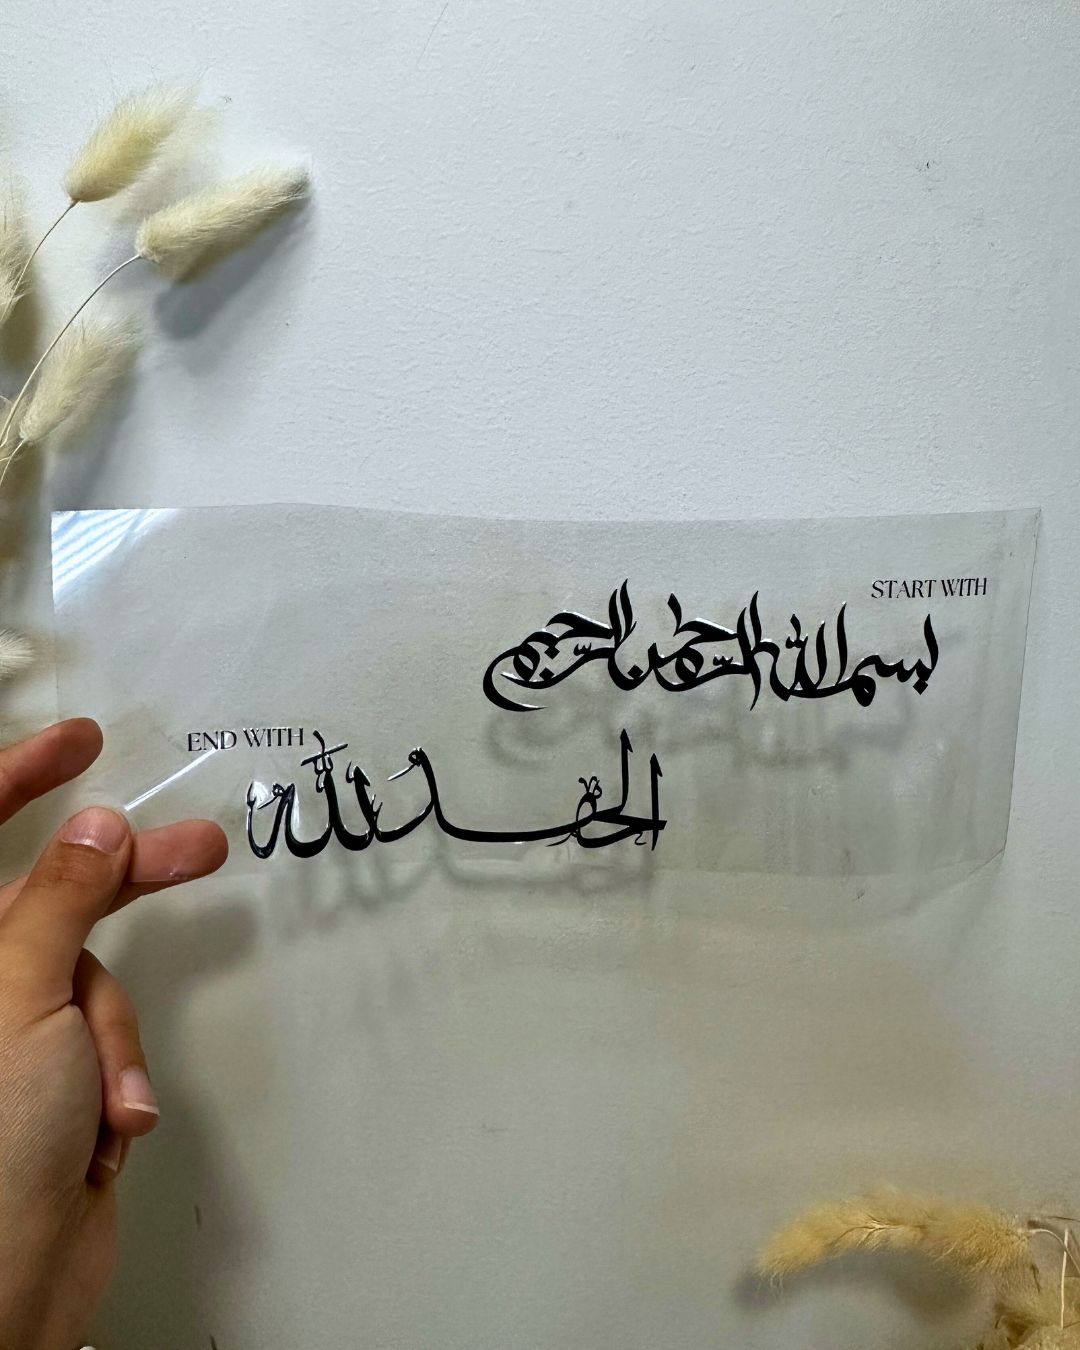 START WITH
بسم الله الرحمن الرحيم
END WITH
الحمد لله